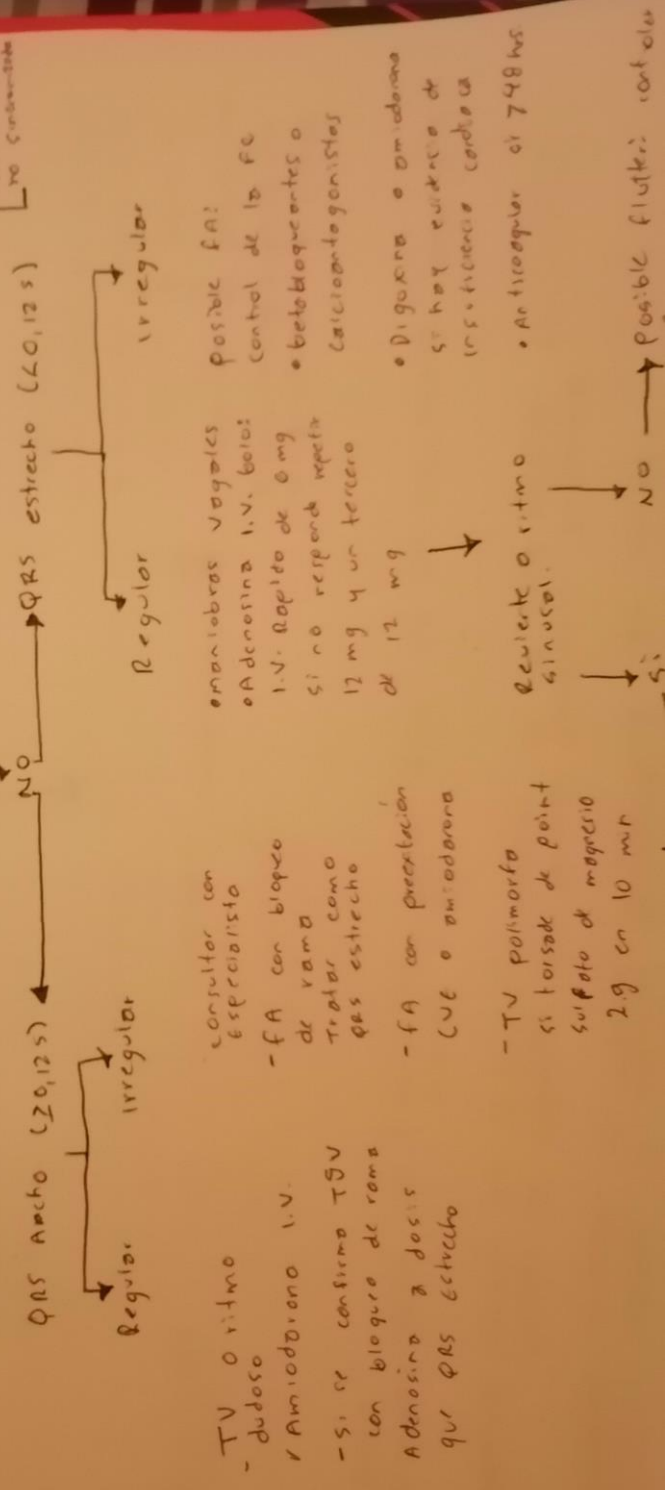 no
NO
QRS Ancho (≥0,12s)
QRS estrecho (<0,12s)
Regular
Irregular
Regular
Irregular
- TV o ritmo
dudoso
Amiodarona I.V.
- si se confirma TSV
con bloqueo de rama
Adenosina a dosis
que QRS Estrecho
consultar con
Especialista
- fA con bloqueo
de rama
Tratar como
QRS estrecho
- fA con preexitación
CVE o amiodarona
- TV polimorfa
si torsade de point
sulfato de magnesio
2.g en 10 min
• Maniobras vagales
• Adenosina I.V. bolo:
I.V. Rapido de 6 mg
si no responde repetir
12 mg y un tercero
de 12 mg
Revierte o ritmo
sinusal.
Si
NO
Posible flutter:
posible fA:
control de la FC
• betabloqueantes o
calcioantagonistas
• Digoxina o amiodarona
si hay evidencia de
insuficiencia cardiaca
• Anticoagular si 748 hrs